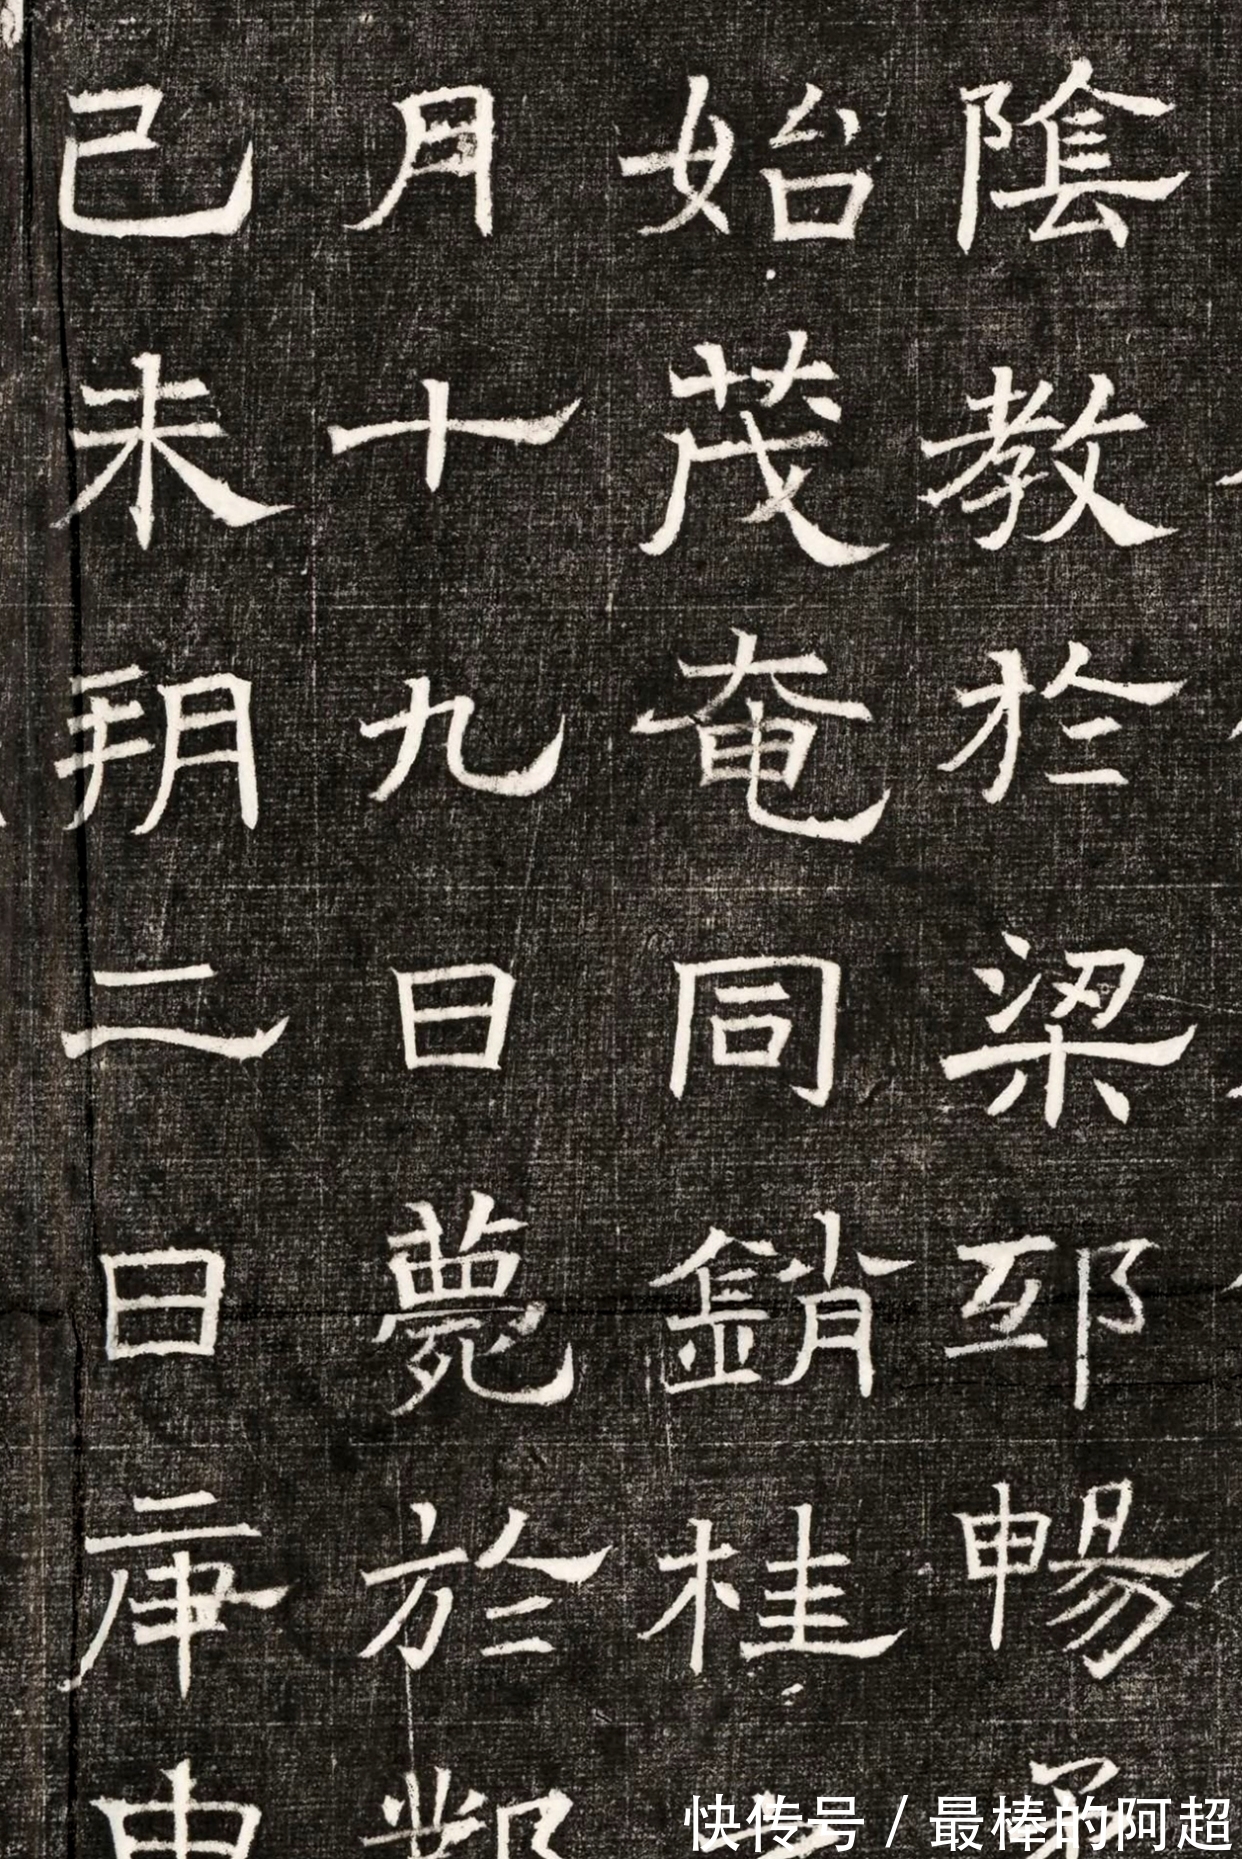 陰教於梁邳暢
始茂奄同銷桂
月十九日薨於鄴
己未朔二日庚申
快传号 / 最棒的阿超